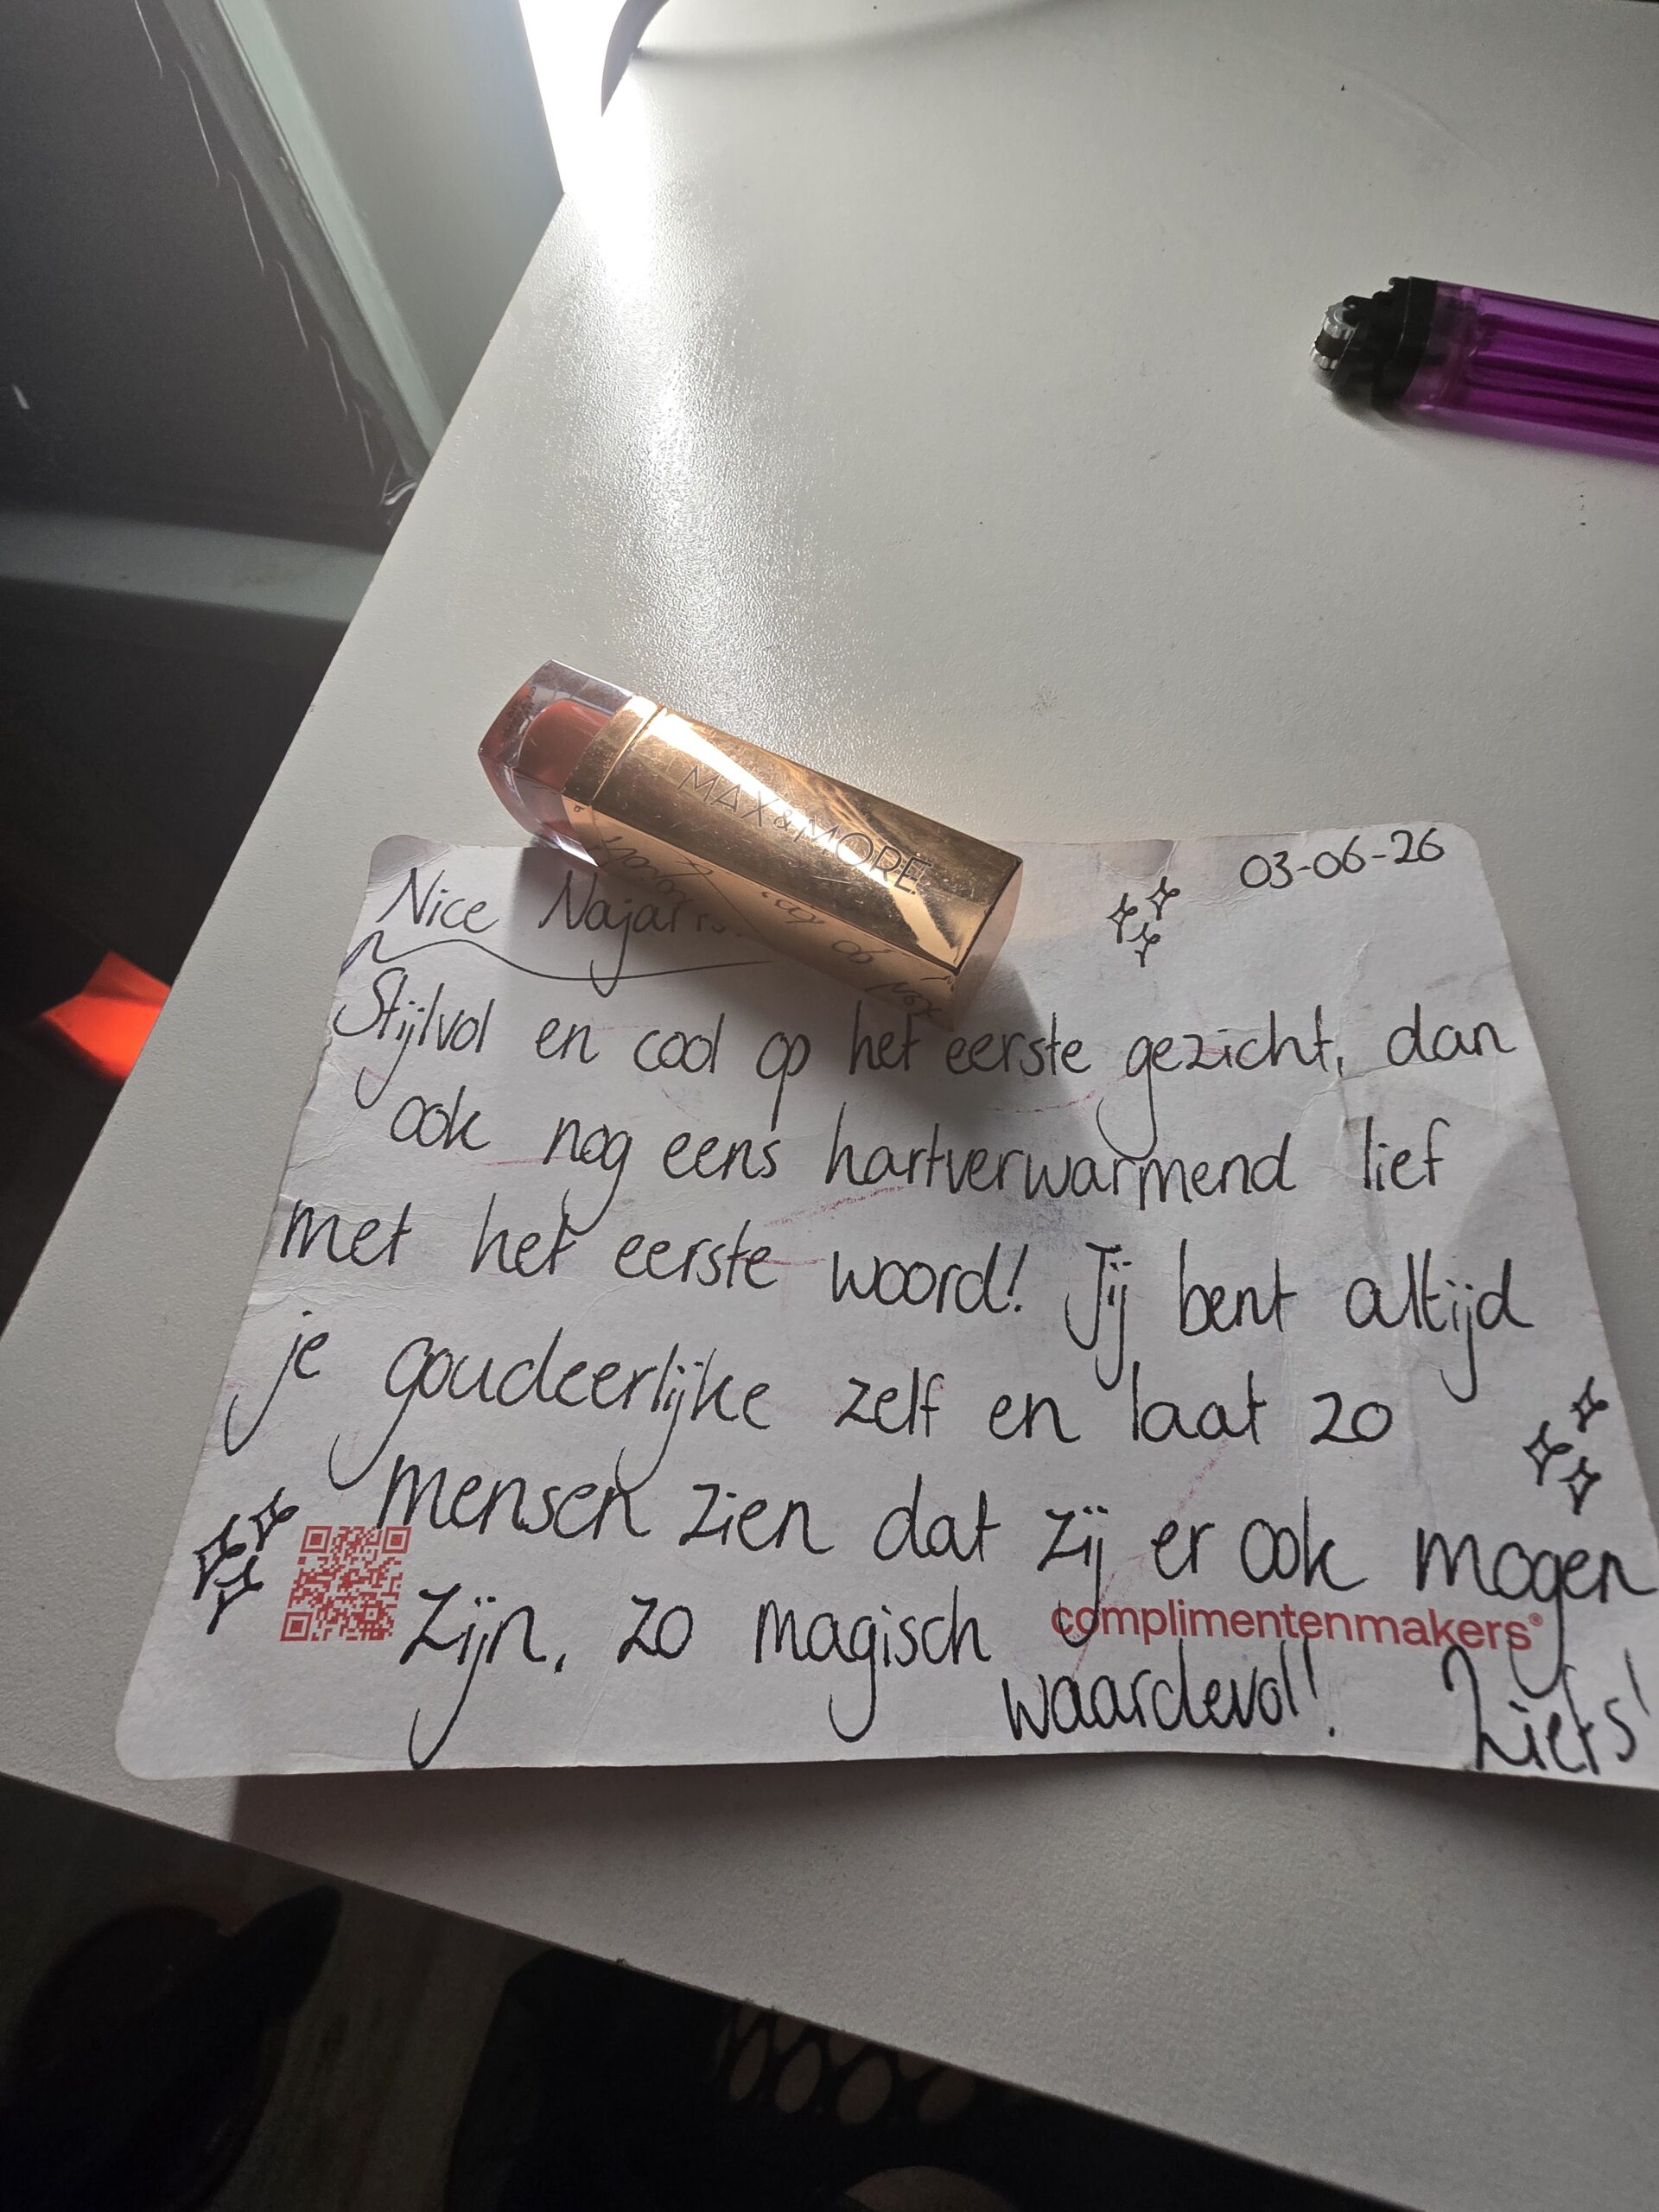 MAX & MORE.
03-06-26
Nice
Stijlvol en cool op het eerste gezicht, dan
ook nog eens hartverwarmend lief
met het eerste woord! Jij bent altijd
je goudeerlijke zelf en laat zo
mensen zien dat zij er ook mogen
zijn, zo magisch
complimentenmakers®
waardevol! Liefs